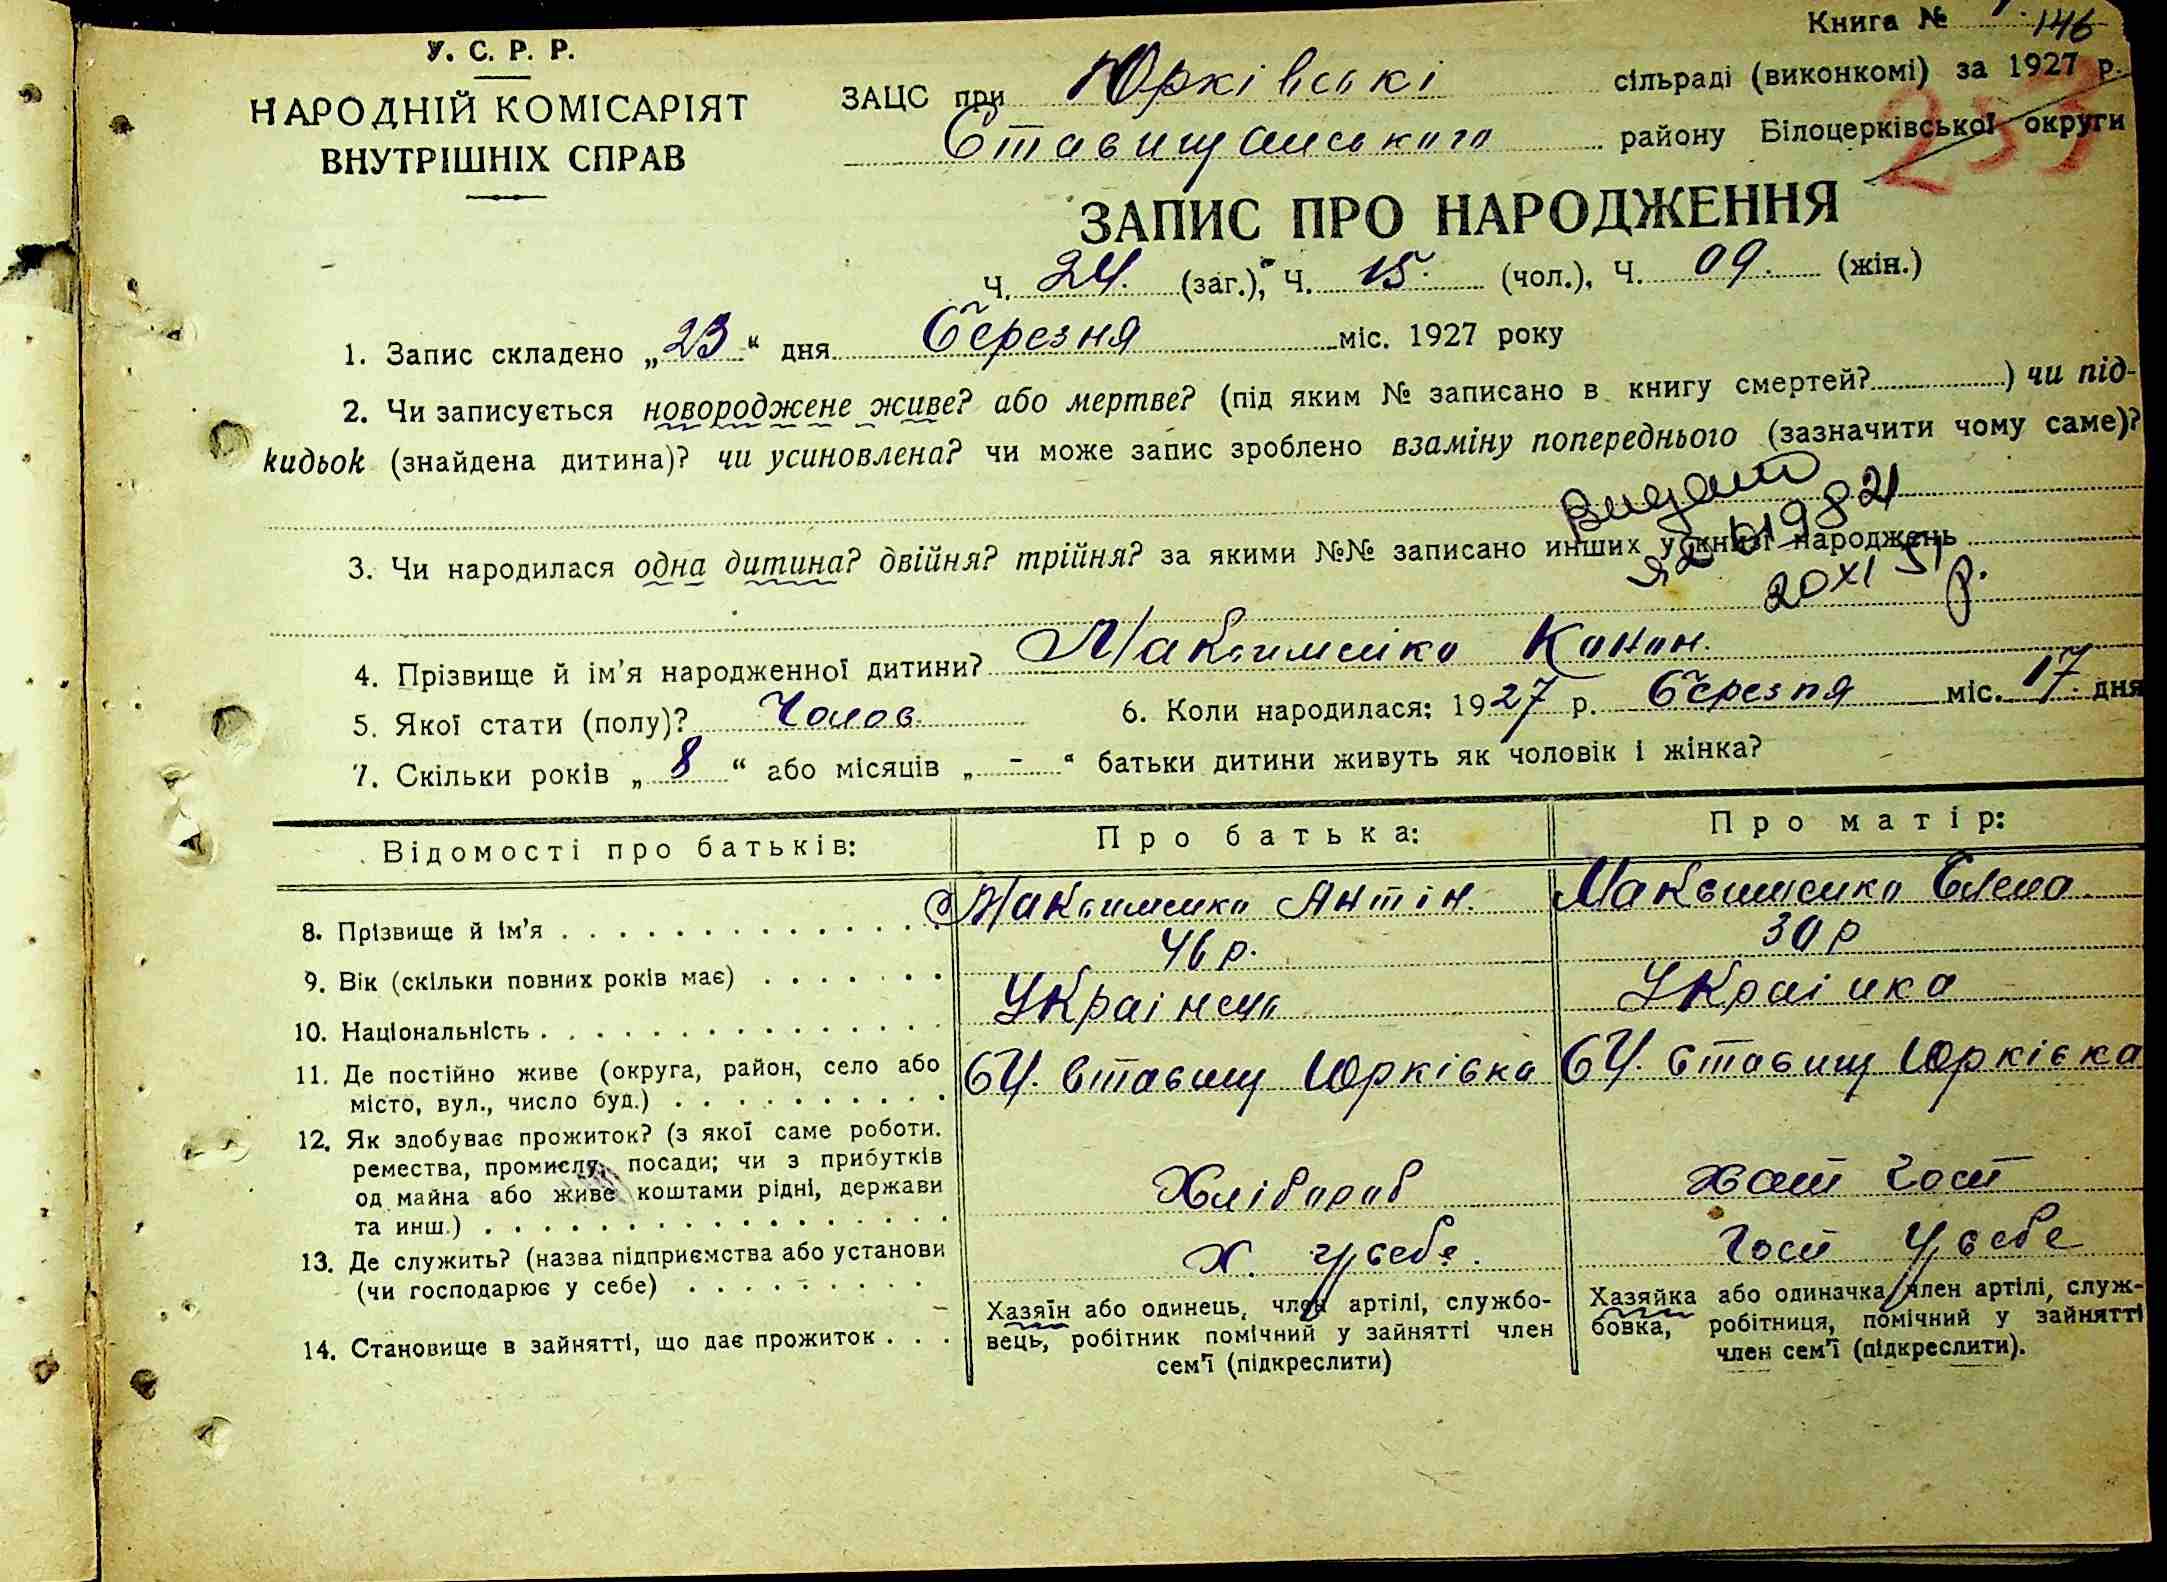 Книга № 146
У. С. Р. Р.
НАРОДНІЙ КОМІСАРІЯТ
ВНУТРІШНІХ СПРАВ
ЗАЦС при Юрківські сільраді (виконкомі) за 1927 р.
Ставищанського району Білоцерківської округи
ЗАПИС ПРО НАРОДЖЕННЯ
Ч. 24. (заг.), Ч. 15. (чол.), Ч. 09. (жін.)
1. Запис складено „23“ дня Березня міс. 1927 року
2. Чи записується новороджене живе? або мертве? (під яким № записано в книгу смертей?) чи під-
кидьок (знайдена дитина)? чи усиновлена? чи може запис зроблено взаміну попереднього (зазначити чому саме)?
Видано
20 XI 51 р.
3. Чи народилася одна дитина? двійня? трійня? за якими №№ записано инших у книзі народжень
4. Прізвище й ім'я народженної дитини? Максименко Конон.
5. Якої стати (полу)? Чолов. 6. Коли народилася: 1927 р. Березня міс. 17. дня
7. Скільки років „8“ або місяців „-“ батьки дитини живуть як чоловік і жінка?
Відомості про батьків: Про батька: Про матір:
8. Прізвище й ім'я Максименко Антін. Максименко Елена
9. Вік (скільки повних років має) 46 р. 30 р
10. Національність Украінець Украінка
11. Де постійно живе (округа, район, село або БЦ. Ставищ Юрківка БЦ. Ставищ Юрківка
місто, вул., число буд.)
12. Як здобуває прожиток? (з якої саме роботи.
ремества, промислу, посади; чи з прибутків
од майна або живе коштами рідні, держави Хлібороб Хат Гост
та инш.)
13. Де служить? (назва підприємства або установи Х. у себе. Гост у себе
(чи господарює у себе)
14. Становище в зайнятті, що дає прожиток
Хазяїн або одинець, член артілі, службо-
вець, робітник помічний у зайнятті член
сем'ї (підкреслити)
Хазяйка або одиначка, член артілі, служ-
бовка, робітниця, помічний у зайнятті
член сем'ї (підкреслити).